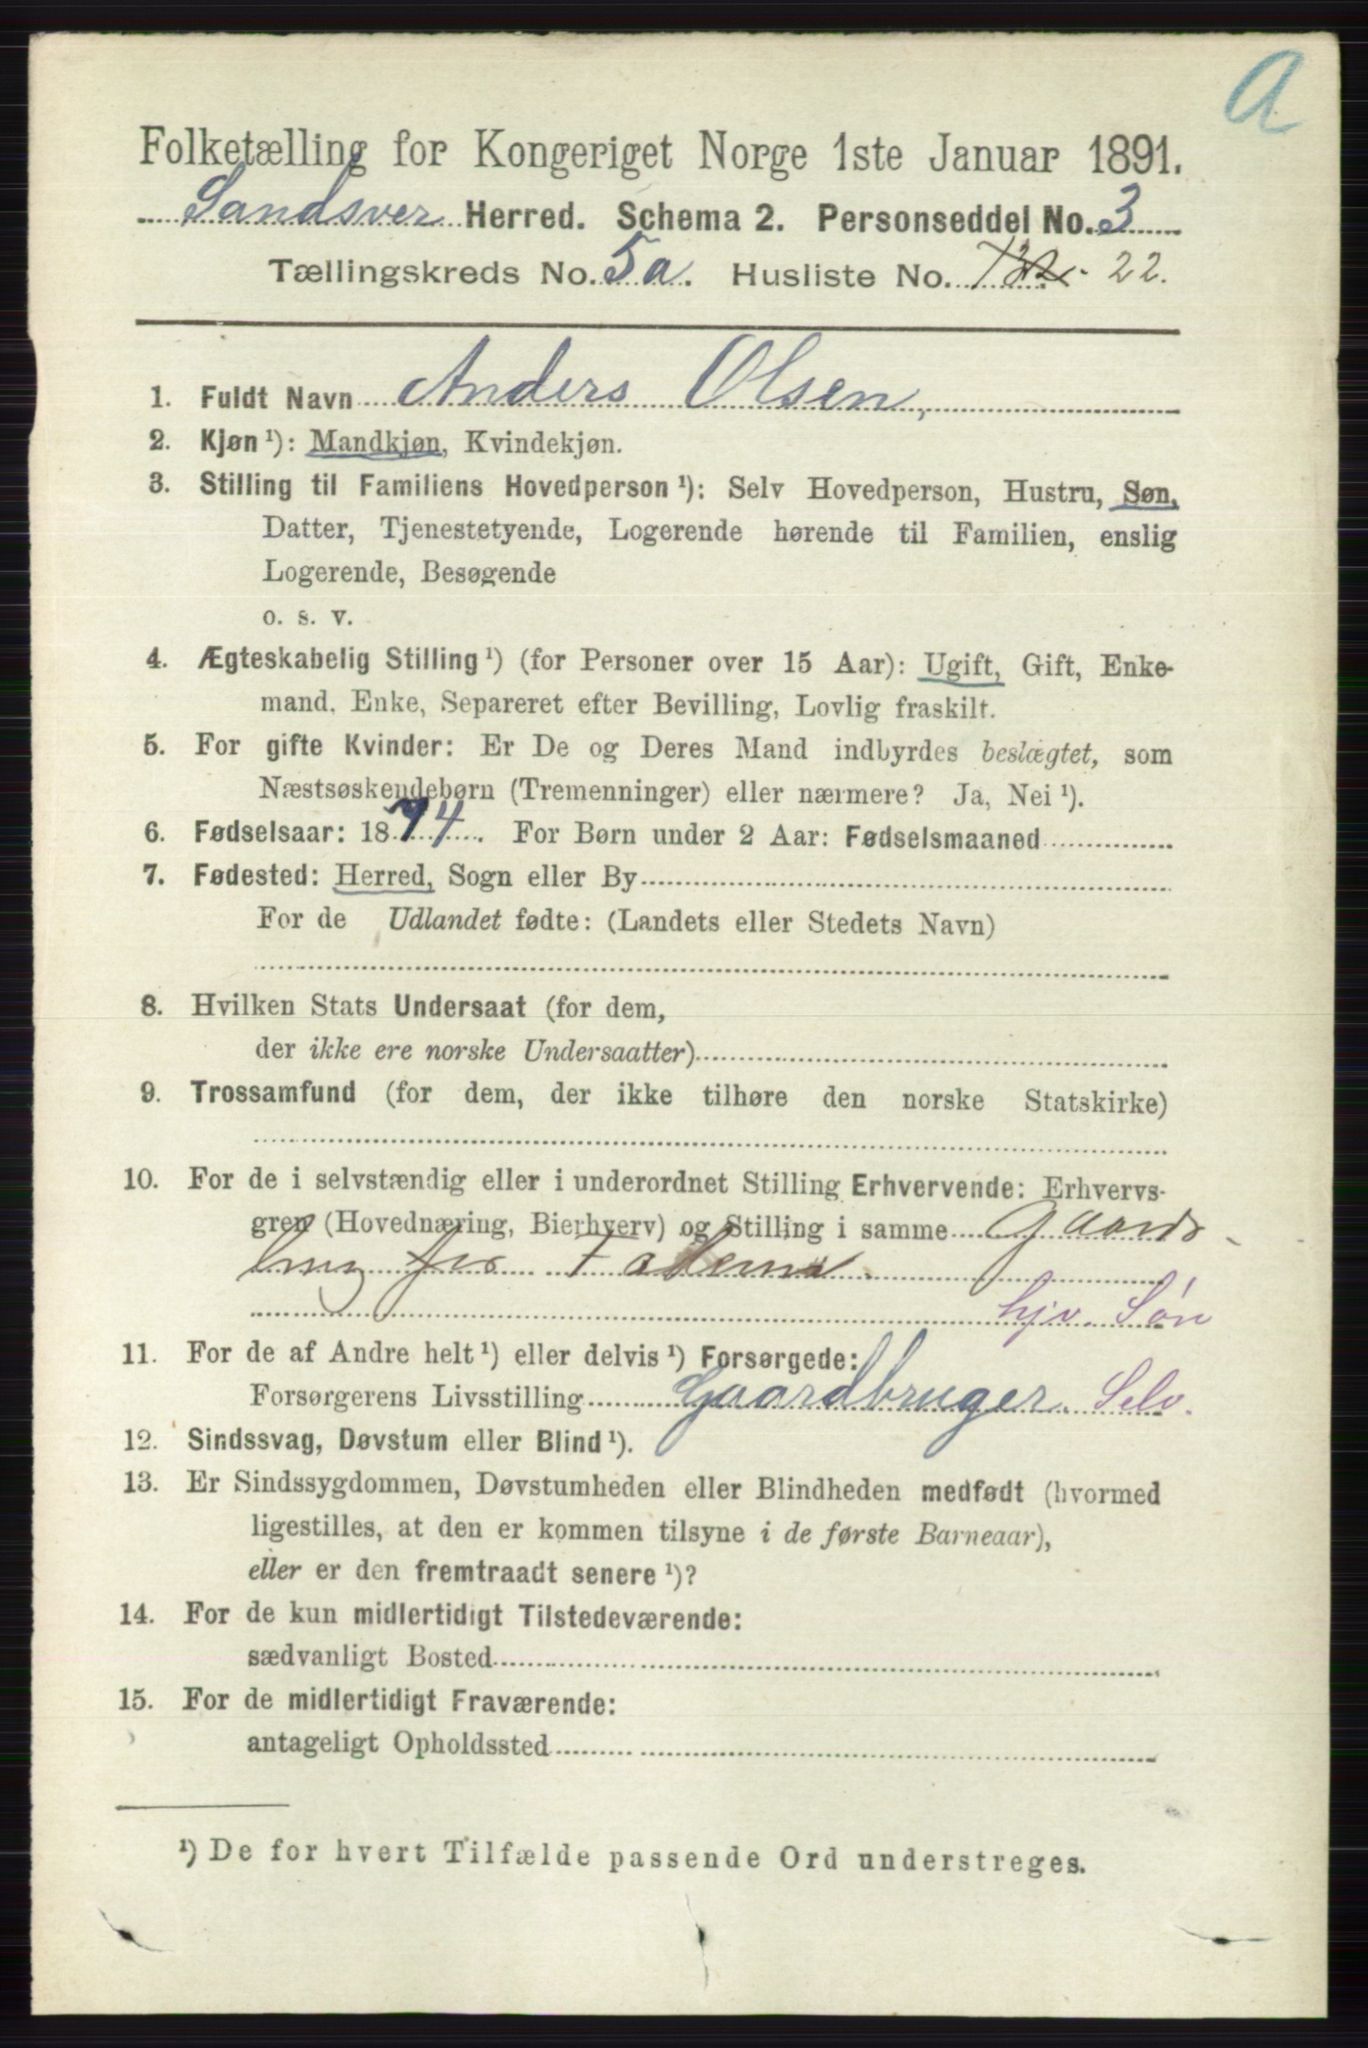 A
Folketælling for Kongeriget Norge 1ste Januar 1891.
Sandsver Herred. Schema 2. Personseddel No. 3
Tællingskreds No. 5a. Husliste No. 22.
1. Fuldt Navn Anders Olsen,
2. Kjøn ¹): Mandkjøn, Kvindekjøn.
3. Stilling til Familiens Hovedperson ¹): Selv Hovedperson, Hustru, Søn,
Datter, Tjenestetyende, Logerende hørende til Familien, enslig
Logerende, Besøgende
o. s. v.
4. Ægteskabelig Stilling ¹) (for Personer over 15 Aar): Ugift, Gift, Enke-
mand, Enke, Separeret efter Bevilling, Lovlig fraskilt.
5. For gifte Kvinder: Er De og Deres Mand indbyrdes beslægtet, som
Næstsøskendebørn (Tremenninger) eller nærmere? Ja, Nei ¹).
6. Fødselsaar: 1874. For Børn under 2 Aar: Fødselsmaaned
7. Fødested: Herred, Sogn eller By
For de Udlandet fødte: (Landets eller Stedets Navn)
8. Hvilken Stats Undersaat (for dem,
der ikke ere norske Undersaatter)
9. Trossamfund (for dem, der ikke tilhøre den norske Statskirke)
10. For de i selvstændig eller i underordnet Stilling Erhvervende: Erhvervs-
gren (Hovednæring, Bierhverv) og Stilling i samme Gaards-
hjv. Søn
11. For de af Andre helt ¹) eller delvis ¹) Forsørgede:
Forsørgerens Livsstilling Gaardbruger. Selv.
12. Sindssvag, Døvstum eller Blind ¹).
13. Er Sindssygdommen, Døvstumheden eller Blindheden medfødt (hvormed
ligestilles, at den er kommen tilsyne i de første Barneaar),
eller er den fremtraadt senere ¹)?
14. For de kun midlertidigt Tilstedeværende:
sædvanligt Bosted
15. For de midlertidigt Fraværende:
antageligt Opholdssted
¹) De for hvert Tilfælde passende Ord understreges.